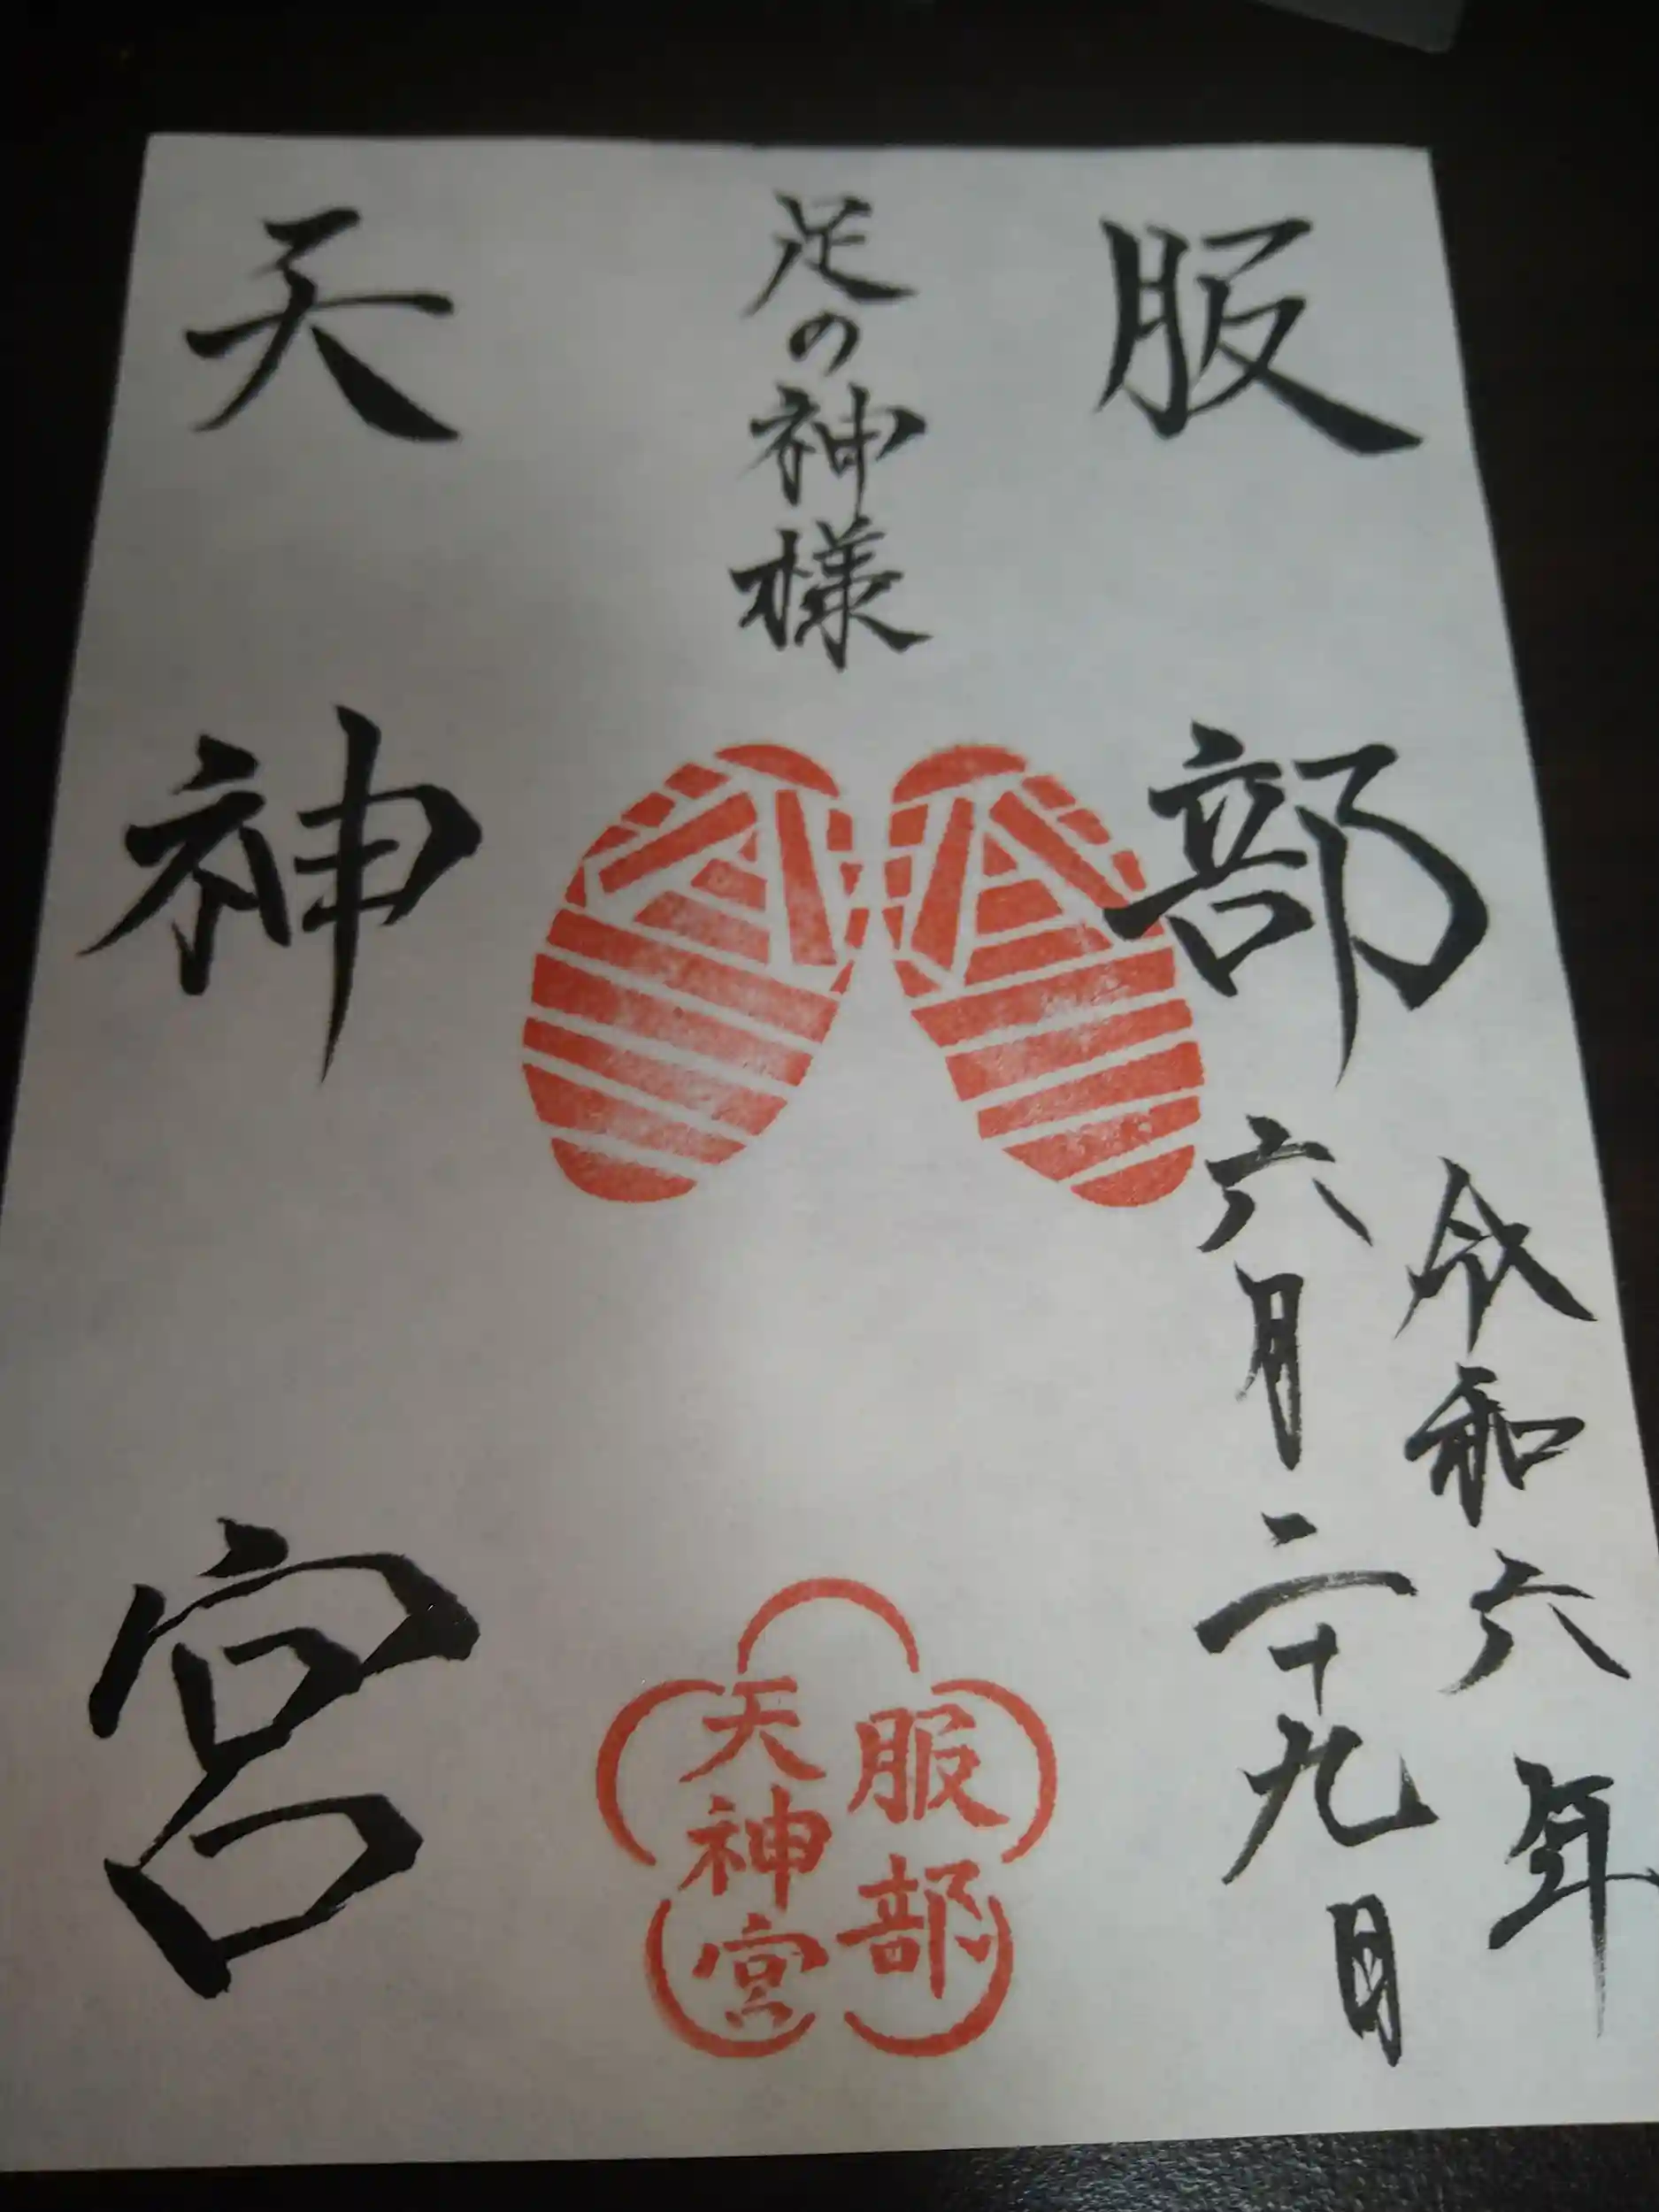 服部
令和六年
六月二十九日
足の神様
服部
天神宮
天神宮